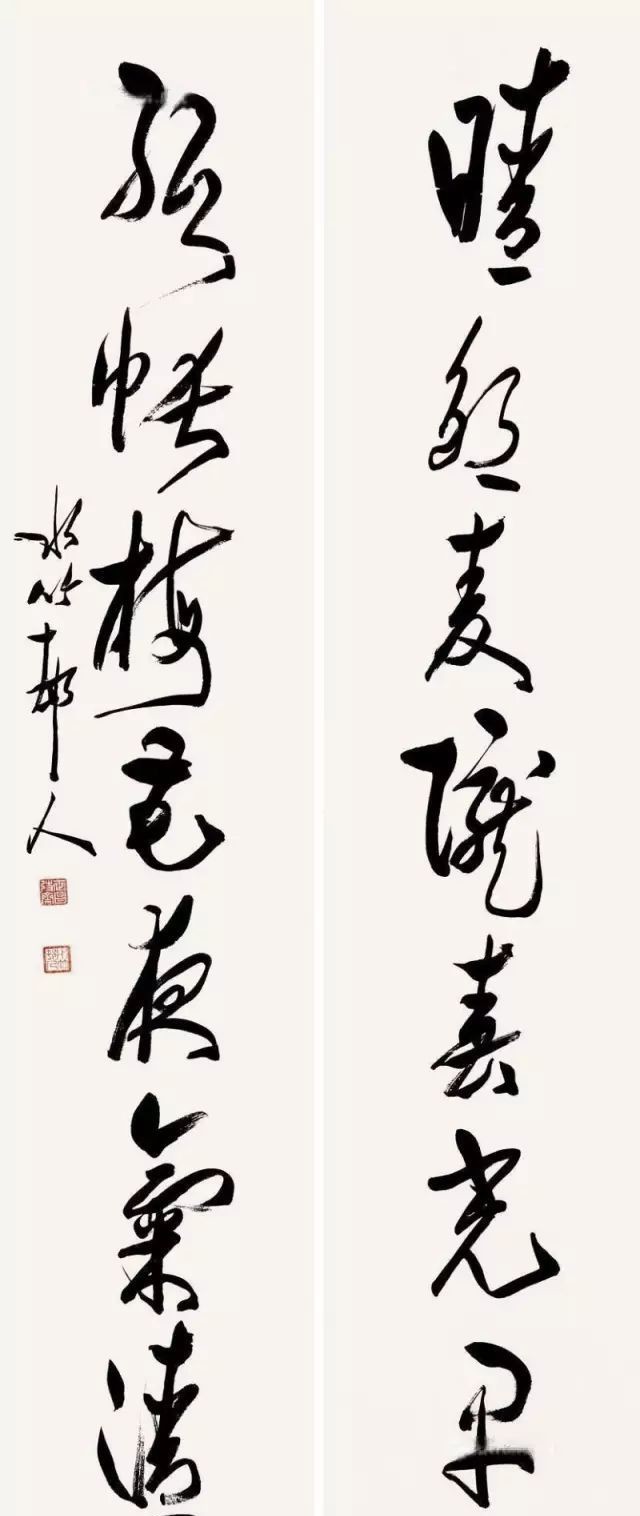 晴麥隴春光早
紙帳梅花夜氣清
水竹邨人